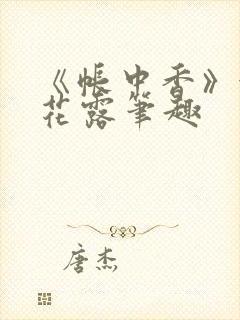 《帐中香》
花露笔趣
唐杰